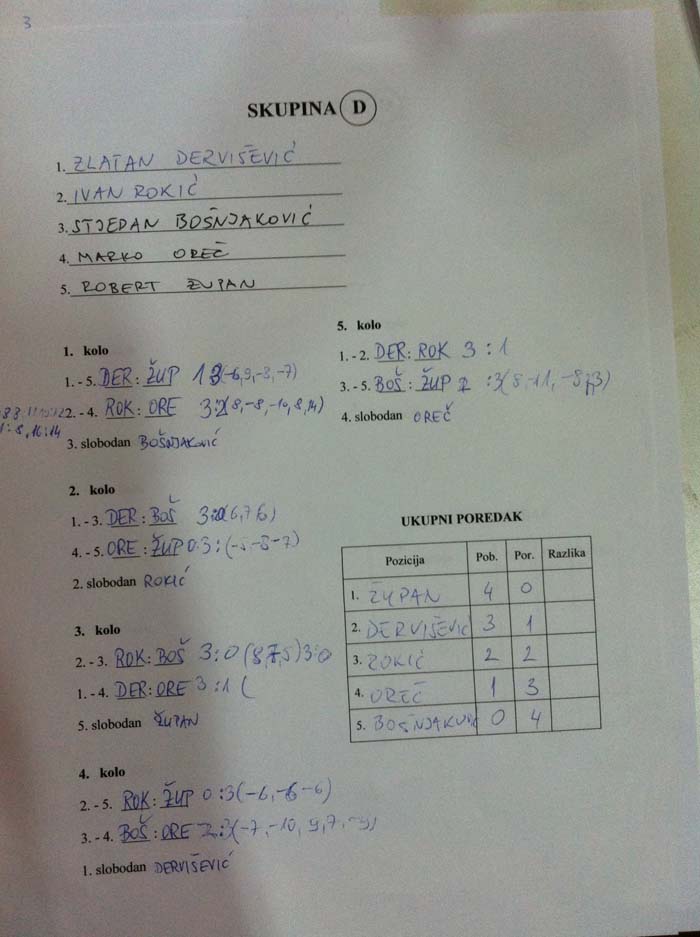 3
SKUPINA D
1. ZLATAN DERVIŠEVIĆ
2. IVAN ROKIĆ
3. STJEPAN BOŠNJAKOVIĆ
4. MARKO OREČ
5. ROBERT ŽUPAN
1. kolo
1. - 5. DER : ŽUP 1 3 (-6, 9, -8, -7)
2. - 4. ROK : ORE 3:2 (8, -8, -10, 8, 14)
3. slobodan BOŠNJAKOVIĆ
2. kolo
1. - 3. DER : BOŠ 3:0 (6, 7, 6)
4. - 5. ORE : ŽUP 0:3 : (-5, -8 -7)
2. slobodan ROKIĆ
3. kolo
2. - 3. ROK : BOŠ 3:0 (8, 7, 5) 3:0
1. - 4. DER : ORE 3:1 (
5. slobodan ŽUPAN
4. kolo
2. - 5. ROK : ŽUP 0:3 (-6, -6 -6)
3. - 4. BOŠ : ORE 2:3 (-7, -10, 9, 7, -9)
1. slobodan DERVIŠEVIĆ
5. kolo
1. - 2. DER : ROK 3 : 1
3. - 5. BOŠ : ŽUP : 3 (8, -11, -8
4. slobodan OREČ
UKUPNI POREDAK
Pozicija Pob. Por. Razlika
1. ŽUPAN 4 0
2. DERVIŠEVIĆ 3 1
3. ROKIĆ 2 2
4. OREČ 1 3
5. BOŠNJAKOVIĆ 0 4